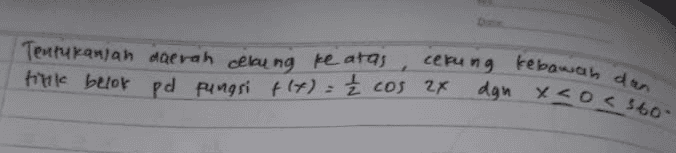 Tentukanlah daerah cekung ke atas, cekung kebawah dan
titik belok pd fungsi f(x) = 1/2 cos 2x dgn x ≤ 0 ≤ 360°